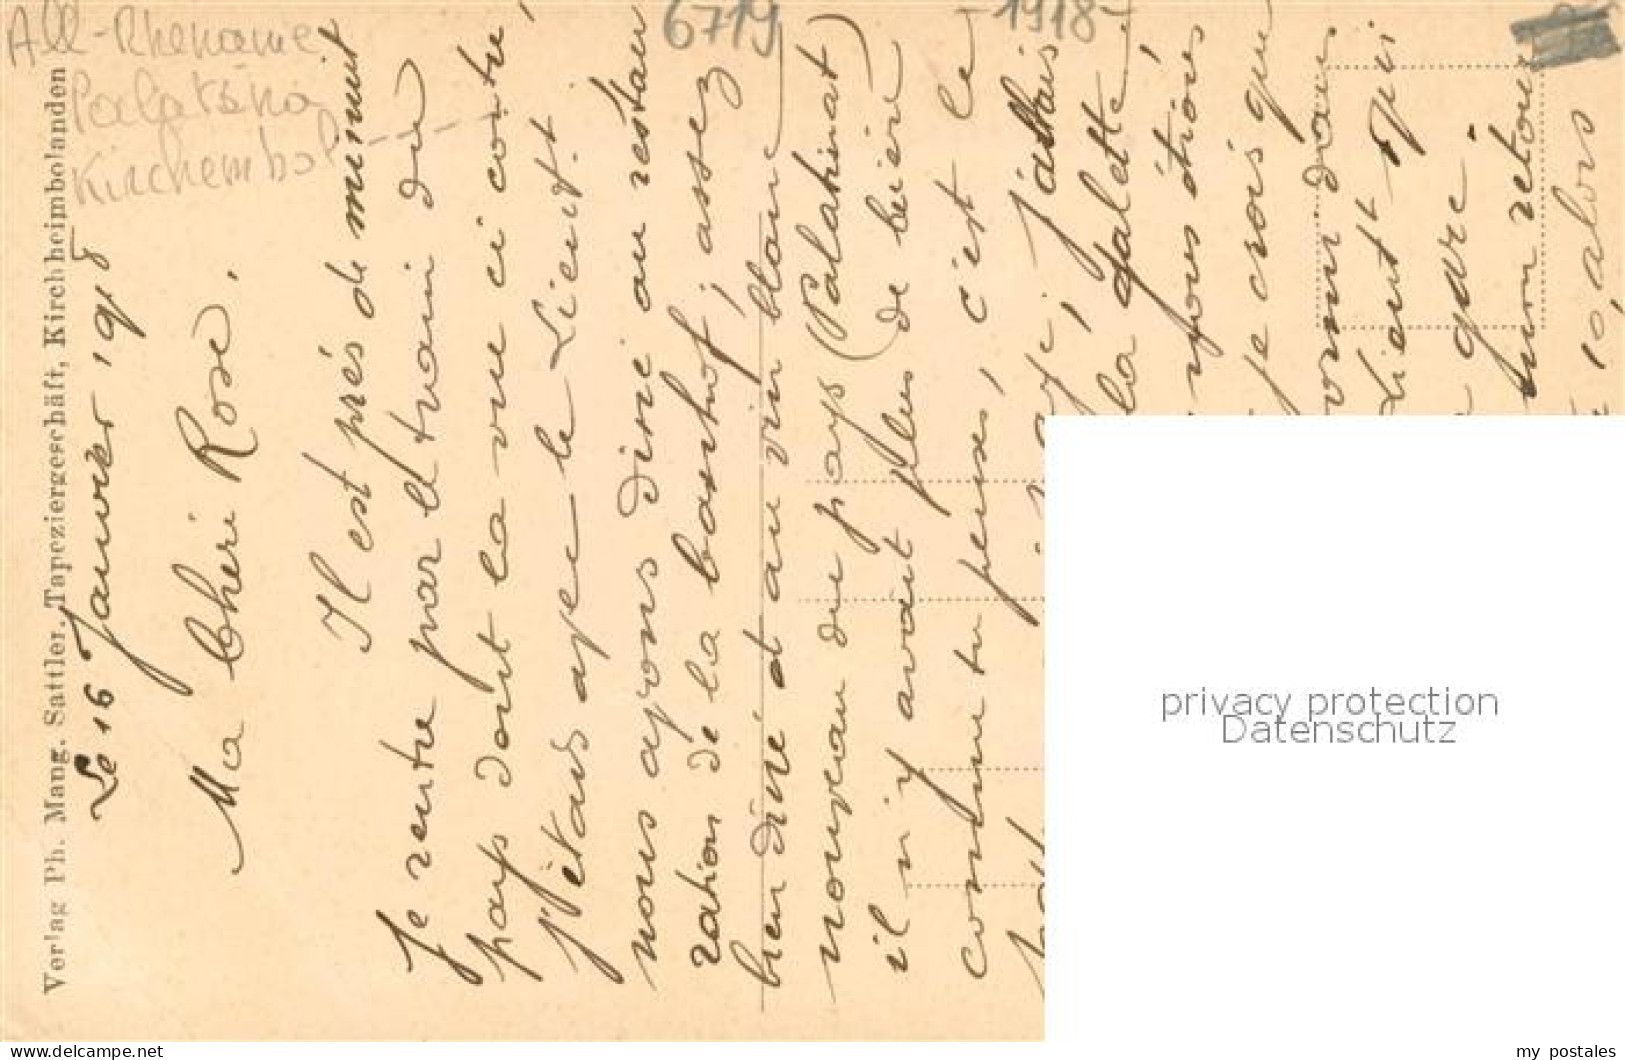 All-Rhenanie
Palatina
Kirchembol
6719
-1918-
Verlag Ph. Mang. Sattler. Tapeziergeschäft, Kirchheimbolanden
Le 16 Janvier 1918
Ma Chérie Rose,
Il est près de minuit
Je rentre par le train du
pays dont la vue ci contre,
j'étais avec le Lieut.
nous avons diné au restau
ration de la banhof, assez
bien diné d'au vin blanc
nouveau du pays (Palatinat)
il n'y avait plus de bière
comme tu penses, c'est le
j'allais
la galette
nous étions
je crois que
dans
Lieut qui
gare
mon retour
10, alors
privacy protection
Datenschutz
www.oldthing.de
my postales